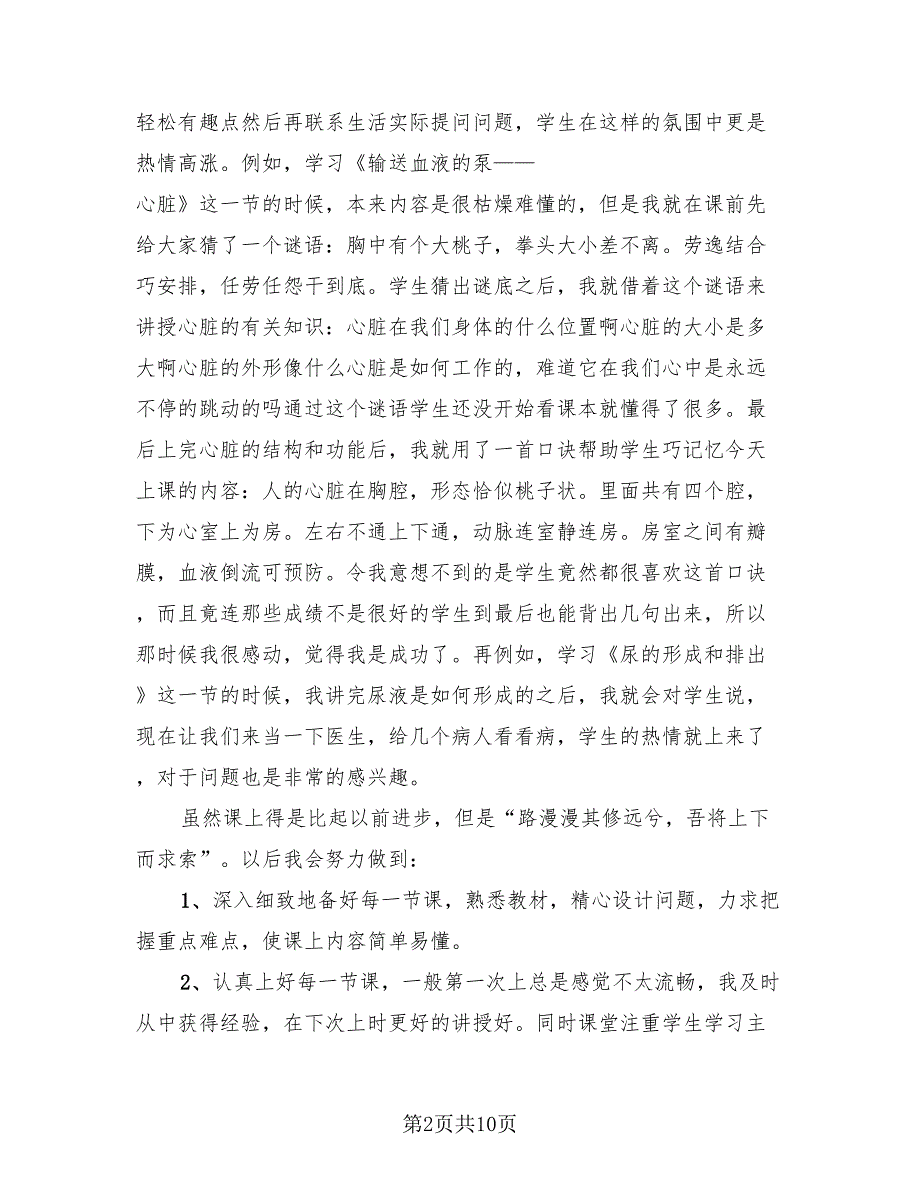 轻松有趣点然后再联系生活实际提问问题，学生在这样的氛围中更是
热情高涨。例如，学习《输送血液的泵——
心脏》这一节的时候，本来内容是很枯燥难懂的，但是我就在课前先
给大家猜了一个谜语：胸中有个大桃子，拳头大小差不离。劳逸结合
巧安排，任劳任怨干到底。学生猜出谜底之后，我就借着这个谜语来
讲授心脏的有关知识：心脏在我们身体的什么位置啊心脏的大小是多
大啊心脏的外形像什么心脏是如何工作的，难道它在我们心中是永远
不停的跳动的吗通过这个谜语学生还没开始看课本就懂得了很多。最
后上完心脏的结构和功能后，我就用了一首口诀帮助学生巧记忆今天
上课的内容：人的心脏在胸腔，形态恰似桃子状。里面共有四个腔，
下为心室上为房。左右不通上下通，动脉连室静连房。房室之间有瓣
膜，血液倒流可预防。令我意想不到的是学生竟然都很喜欢这首口诀
，而且竟连那些成绩不是很好的学生到最后也能背出几句出来，所以
那时候我很感动，觉得我是成功了。再例如，学习《尿的形成和排出
》这一节的时候，我讲完尿液是如何形成的之后，我就会对学生说，
现在让我们来当一下医生，给几个病人看看病，学生的热情就上来了
，对于问题也是非常的感兴趣。
虽然课上得是比起以前进步，但是“路漫漫其修远兮，吾将上下
而求索”。以后我会努力做到：
1、深入细致地备好每一节课，熟悉教材，精心设计问题，力求把
握重点难点，使课上内容简单易懂。
2、认真上好每一节课，一般第一次上总是感觉不太流畅，我及时
从中获得经验，在下次上时更好的讲授好。同时课堂注重学生学习主
第2页共10页